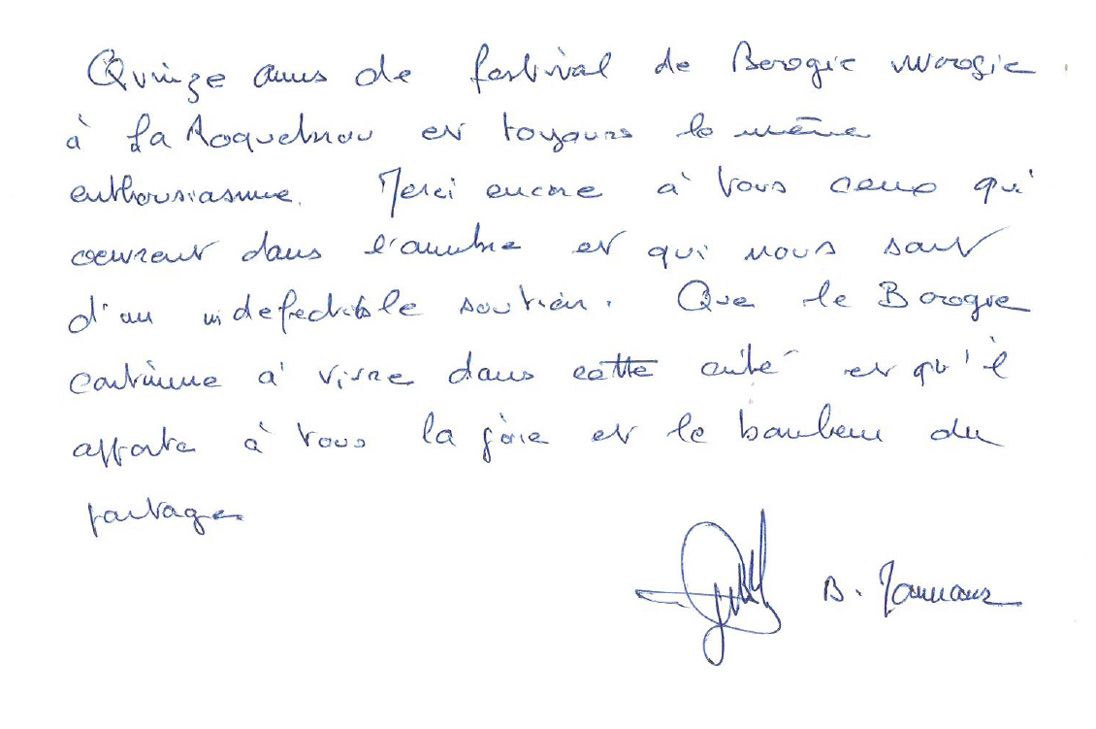 Quinze ans de festival de Boogie Woogie
à La Roquebrou et toujours le même
enthousiasme. Merci encore à tous ceux qui
œuvrent dans l'ombre et qui nous sont
d'un indefectible soutien. Que le Boogie
continue à vivre dans cette cité et qu'il
apporte à tous la joie et le bonheur du
partage
B.